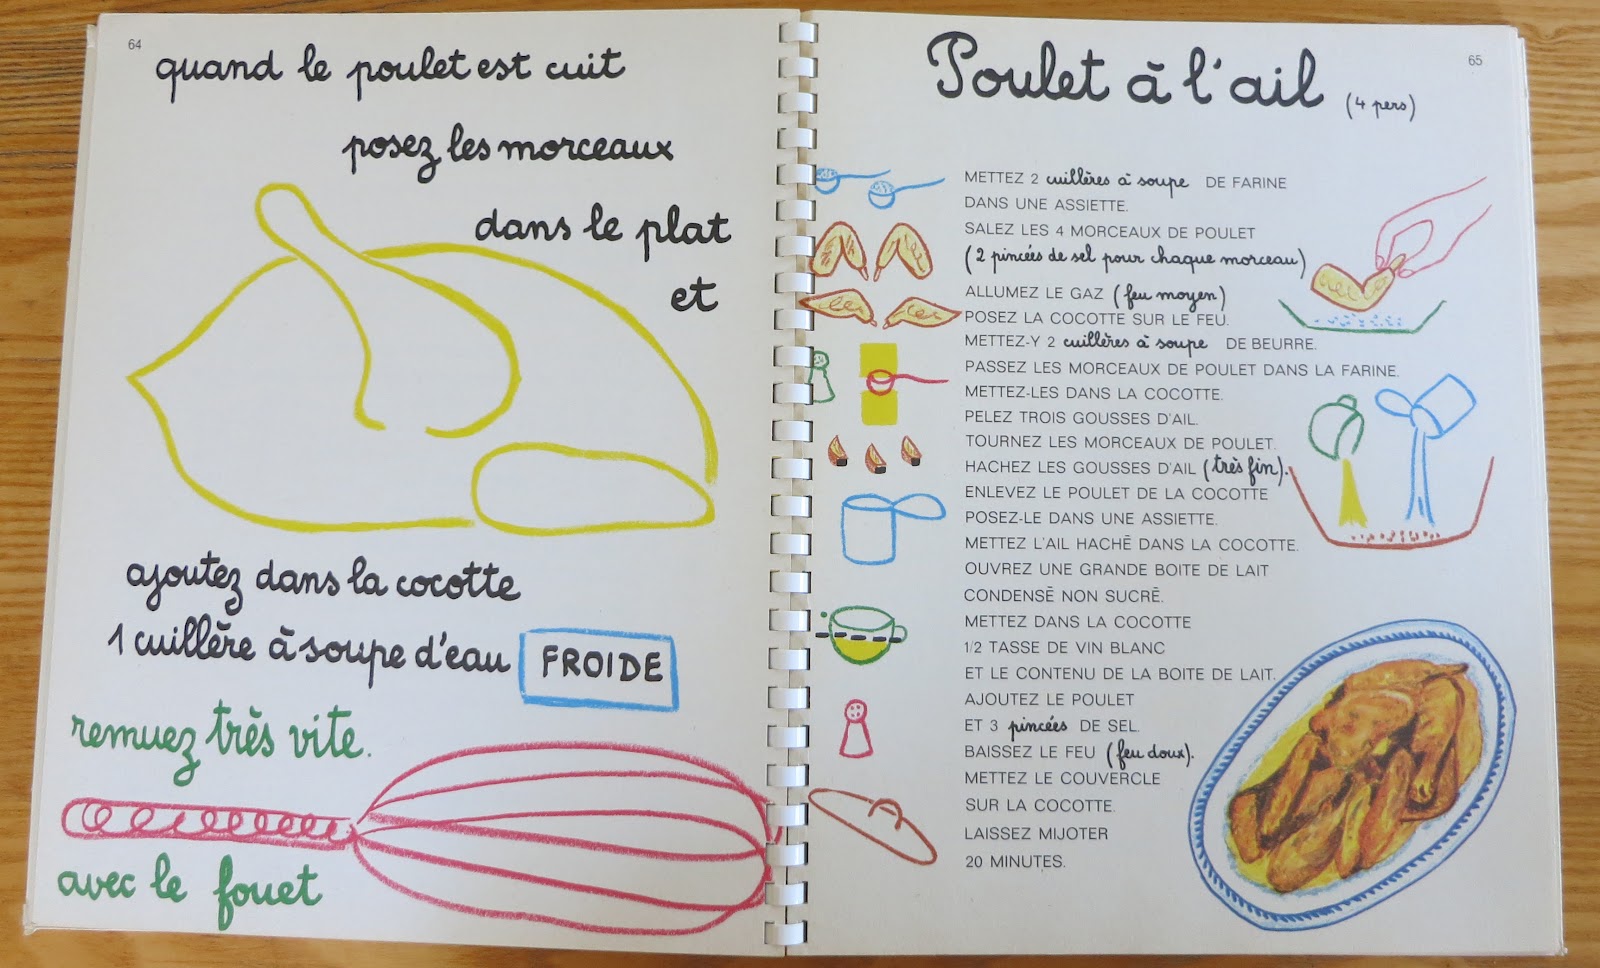 64
quand le poulet est cuit
posez les morceaux
dans le plat
et
ajoutez dans la cocotte
1 cuillère à soupe d'eau FROIDE
remuez très vite.
avec le fouet
65
Poulet à l'ail (4 pers)
METTEZ 2 cuillères à soupe DE FARINE
DANS UNE ASSIETTE.
SALEZ LES 4 MORCEAUX DE POULET
(2 pincées de sel pour chaque morceau)
ALLUMEZ LE GAZ (feu moyen)
POSEZ LA COCOTTE SUR LE FEU.
METTEZ-Y 2 cuillères à soupe DE BEURRE.
PASSEZ LES MORCEAUX DE POULET DANS LA FARINE.
METTEZ-LES DANS LA COCOTTE.
PELEZ TROIS GOUSSES D'AIL.
TOURNEZ LES MORCEAUX DE POULET.
HACHEZ LES GOUSSES D'AIL (très fin).
ENLEVEZ LE POULET DE LA COCOTTE
POSEZ-LE DANS UNE ASSIETTE.
METTEZ L'AIL HACHÉ DANS LA COCOTTE.
OUVREZ UNE GRANDE BOITE DE LAIT
CONDENSÉ NON SUCRÉ.
METTEZ DANS LA COCOTTE
1/2 TASSE DE VIN BLANC
ET LE CONTENU DE LA BOITE DE LAIT.
AJOUTEZ LE POULET
ET 3 pincées DE SEL.
BAISSEZ LE FEU (feu doux).
METTEZ LE COUVERCLE
SUR LA COCOTTE.
LAISSEZ MIJOTER
20 MINUTES.